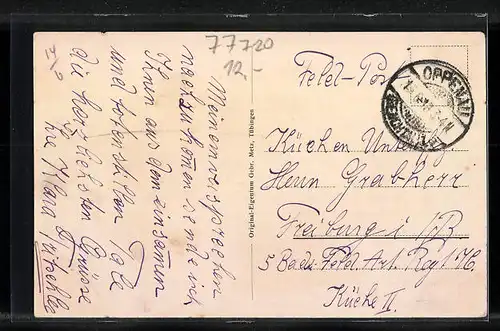 77720
12,-
Meinem versprechen
nachzukommen sende ich
Ihnen aus dem einsamen
und totenstillen Tale
die herzlichsten Grüsse
Ihre Klara
Original-Eigentum Gebr. Metz, Tübingen
Feld-Post
OPPENAU
Küchen Unteroffz.
Herrn Grabherr
Freiburg i/B
5 Bad. Feld. Art. Rgt 76.
Küche II.